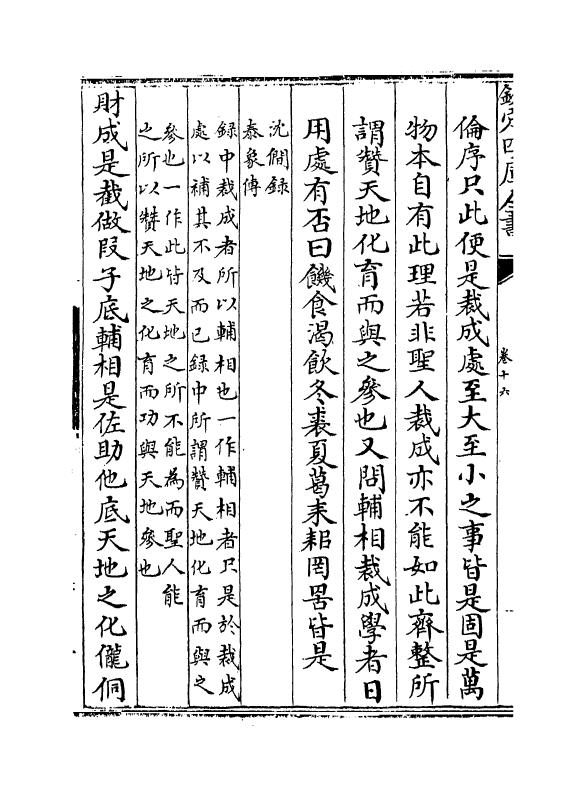 欽定四庫全書
卷十六
倫序只此便是裁成處至大至小之事皆是固是萬
物本自有此理若非聖人裁成亦不能如此齊整所
謂贊天地化育而與之參也又問輔相裁成學者日
用處有否曰饑食渴飲冬裘夏葛耒耜罔罟皆是
沈僩録
泰象傳
録中裁成者所以輔相也一作輔相者只是於裁成
處以補其不及而已録中所謂贊天地化育而與之
參也一作此皆天地之所不能為而聖人能
之所以贊天地之化育而功與天地參也
財成是截做段子底輔相是佐助他底天地之化儱侗